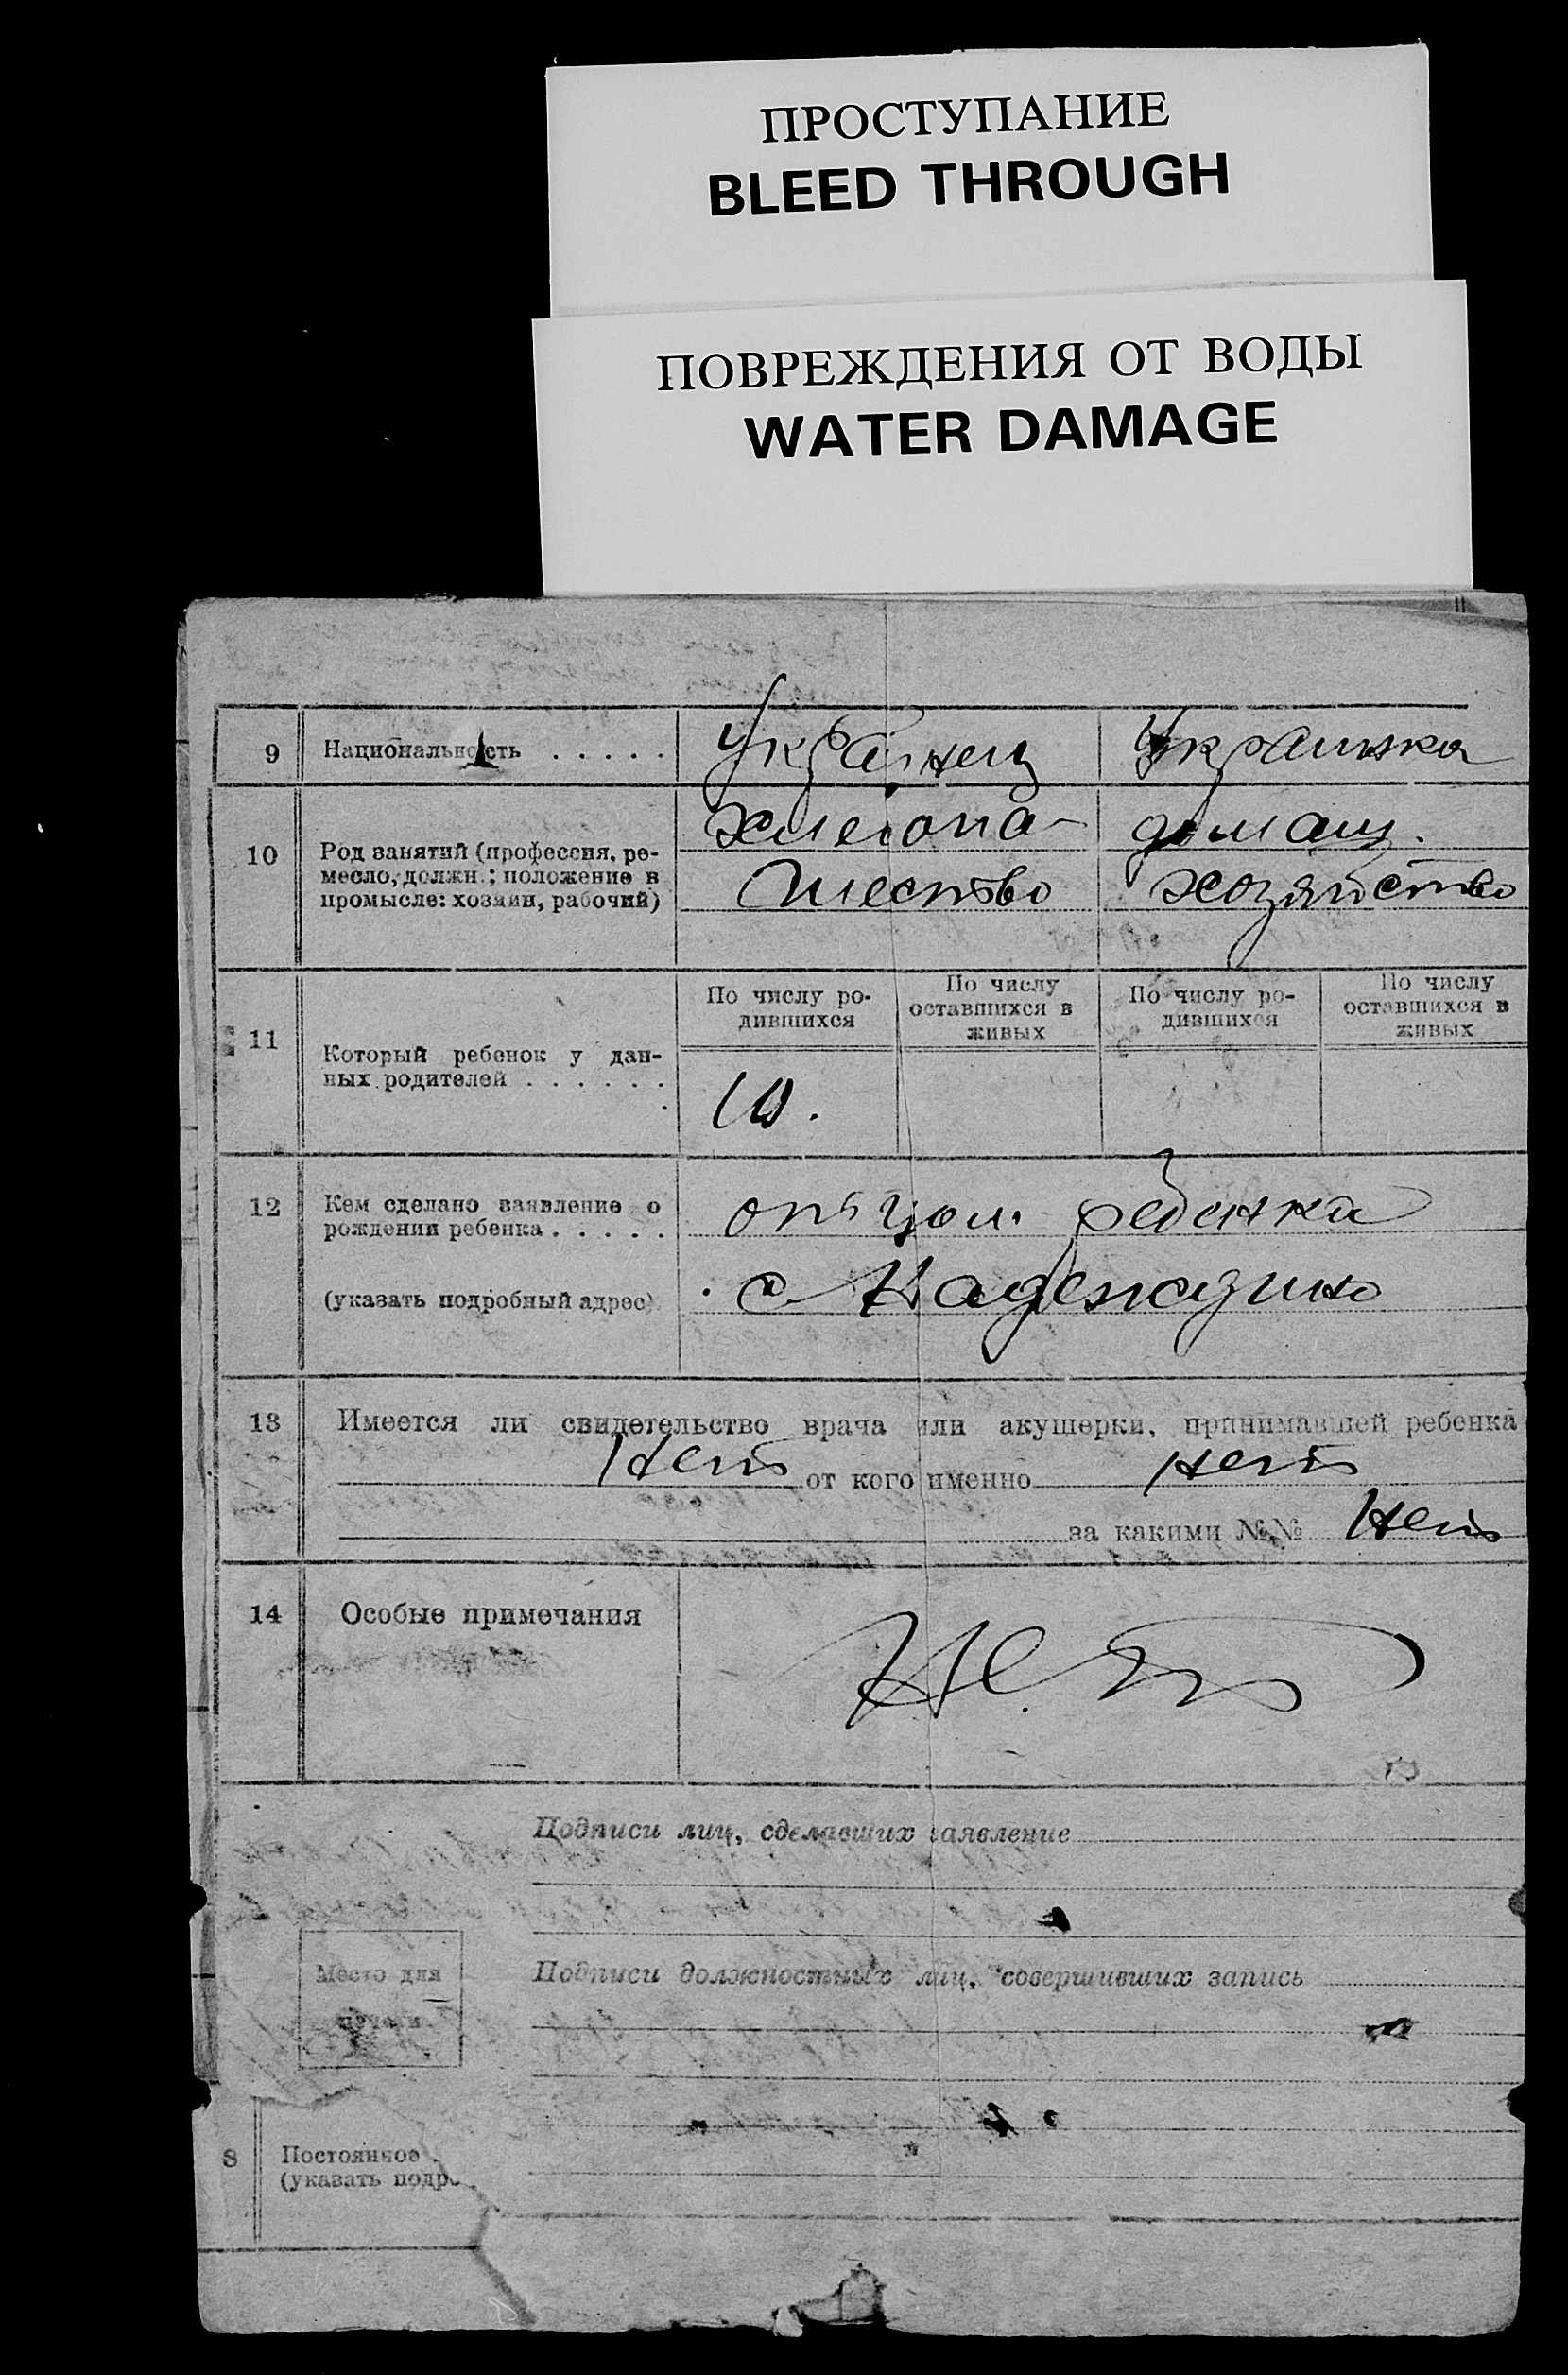 ПРОСТУПАНИЕ
BLEED THROUGH
ПОВРЕЖДЕНИЯ ОТ ВОДЫ
WATER DAMAGE
9 Национальность . . . . . Украинец Украинка
10 Род занятий (профессия, ре-
месло, должн.; положение в
промысле: хозяин, рабочий)
хлебопа-
шество
домаш.
хозяйство
11 Который ребенок у дан-
ных родителей . . . . . . .
По числу ро-
дившихся
По числу
оставшихся в
живых
По числу ро-
дившихся
По числу
оставшихся в
живых
12 Кем сделано заявление о
рождении ребенка . . . . .
отцом ребенка
(указать подробный адрес) с Надеждино
13 Имеется ли свидетельство врача или акушерки, принимавшей ребенка
Нет от кого именно нет
за какими №№ Нет
14 Особые примечания Нет
Подписи лиц, сделавших заявление
Место для
печати
Подписи должностных лиц, совершивших запись
8 Постоянное
(указать подро